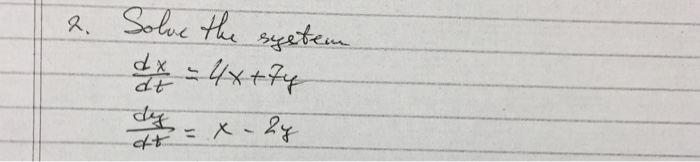 2. Solve the system
dx/dt = 4x+7y
dy/dt = x - 2y